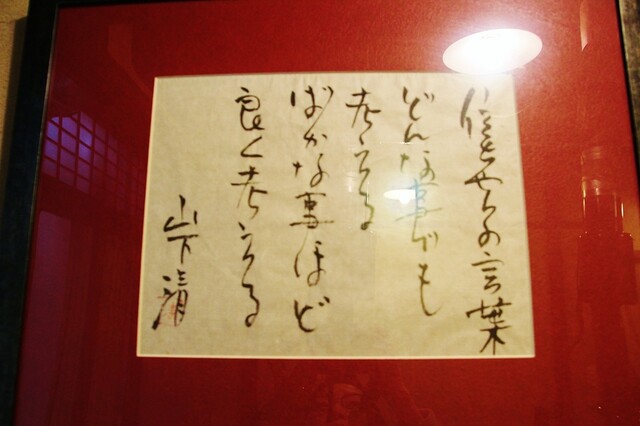 信とやらの言葉
どんな事でも
考える
ばかな事ほど
良く考える
山下清